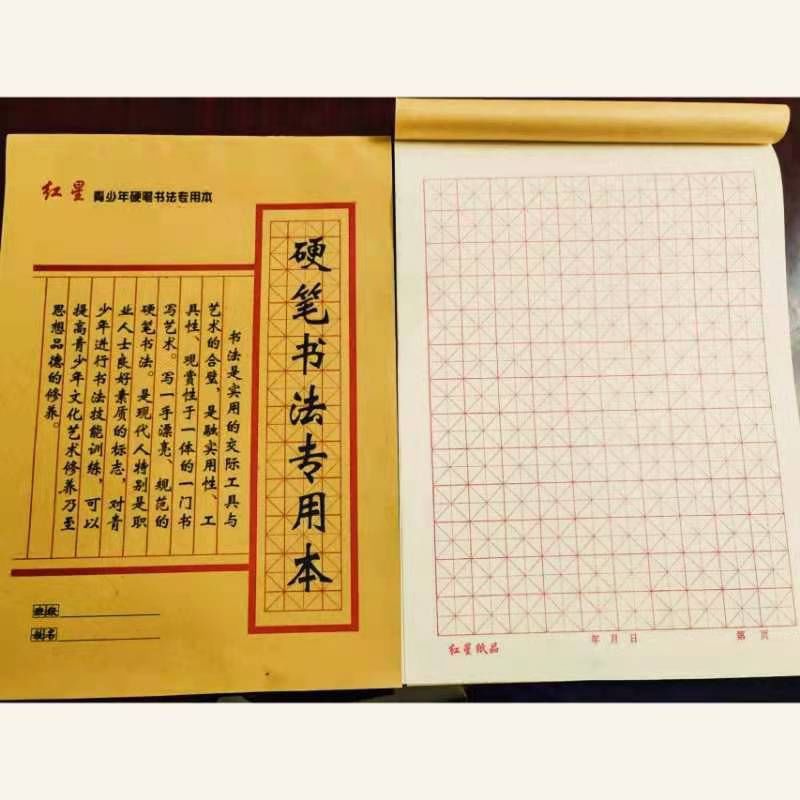 红星 青少年硬笔书法专用本
硬笔书法专用本
书法是实用的交际工具与
艺术的合壁，是融实用性、工
具性、观赏性于一体的一门书
写艺术。写一手漂亮、规范的
硬笔书法。是现代人特别是职
业人士良好素质的标志，对青
少年进行书法技能训练，可以
提高青少年文化艺术修养乃至
思想品德的修养。
班级
姓名
红星纸品
年 月 日
第 页